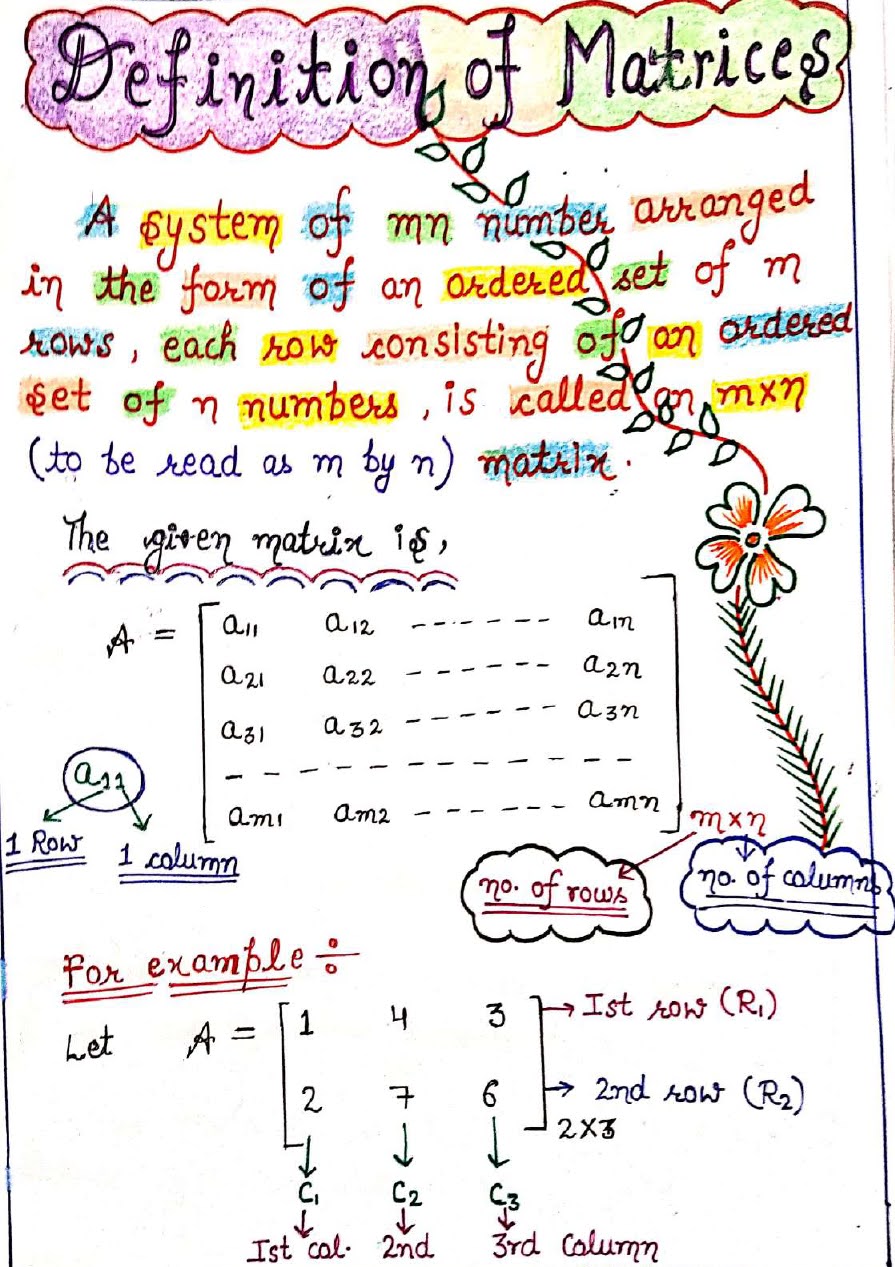 Definition of Matrices
A system of mn number arranged
in the form of an ordered set of m
rows, each row consisting of an ordered
set of n numbers, is called an m×n
(to be read as m by n) matrix.
The given matrix is,
A = [ a11 a12 ------- a1n
a21 a22 ------- a2n
a31 a32 ------- a3n
- - - - - - - - - - - -
am1 am2 ------- amn ] m×n
a11
1 Row 1 column
no. of rows no. of columns
For example ÷
Let A = [ 1 4 3 ] → Ist row (R1)
2 7 6 → 2nd row (R2)
2×3
↓ ↓ ↓
C1 C2 C3
↓ ↓ ↓
Ist col. 2nd 3rd Column